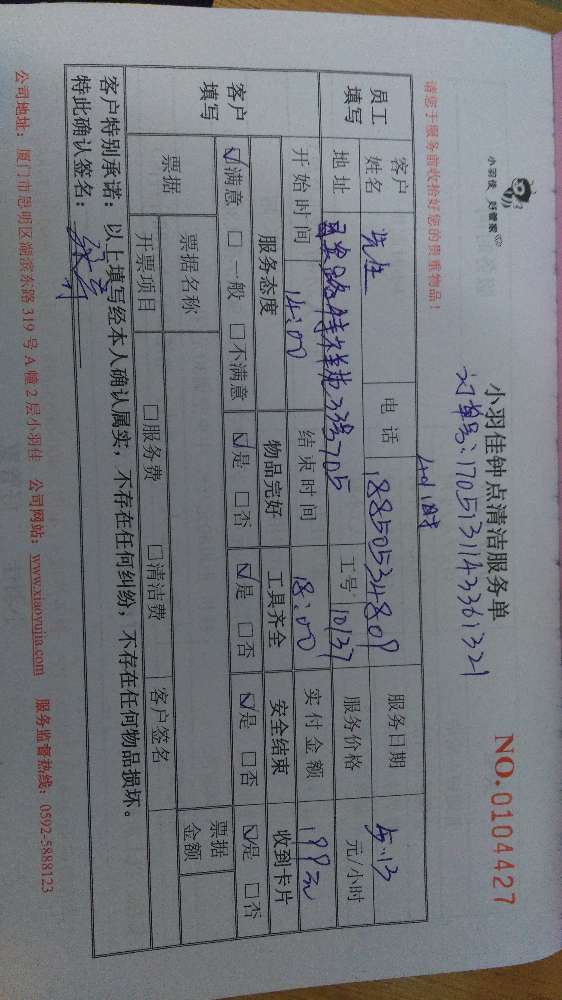 小羽佳 好管家
小羽佳钟点清洁服务单
NO.0104427
订单号:1705131143361321
请您于服务前收拾好您的贵重物品!
4小时
员工填写
客户姓名 先生 电话 18850534809 服务日期 5.13
地址 路 705 工号 10137 服务价格 元/小时
开始时间 14:00 结束时间 18:00 实付金额 199元
客户填写
服务态度 物品完好 工具齐全 安全结束 收到卡片
☑满意 □一般 □不满意 ☑是 □否 ☑是 □否 ☑是 □否 ☑是 □否
票据 票据名称 票据金额
开票项目 □服务费 □清洁费 客户签名
客户特别承诺:以上填写经本人确认属实,不存在任何纠纷,不存在任何物品损坏。
特此确认签名:
公司地址:厦门市思明区湖滨东路319号A幢2层小羽佳 公司网站:www.xiaoyujia.com 服务监督热线:0592-5888123